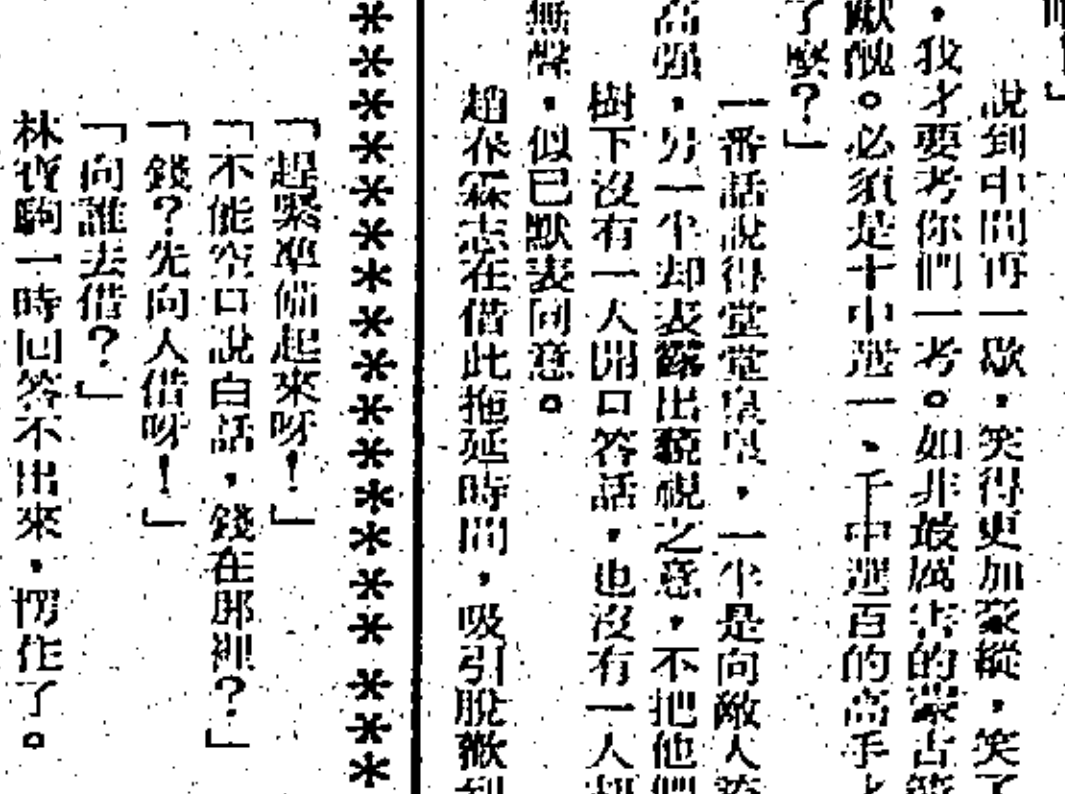 說到中間再一歇，笑得更加豪縱，笑了
，我才要考你們一考。如非最厲害的蒙古
獻醜。必須是十中選一、千中選百的高手
了麼？」
一番話說得堂堂皇皇，一半是向敵人
高強，另一半却表露出藐視之意，不把他們
樹下沒有一人開口答話，也沒有一人
無聲，似已默表同意。
趙春霖志在借此拖延時間，吸引脫歡到
＊＊＊＊＊＊＊＊＊＊＊＊＊＊＊＊＊＊
「趕緊準備起來呀！」
「不能空口說白話，錢在那裡？」
「錢？先向人借呀！」
「向誰去借？」
林寶駒一時回答不出來，愣住了。